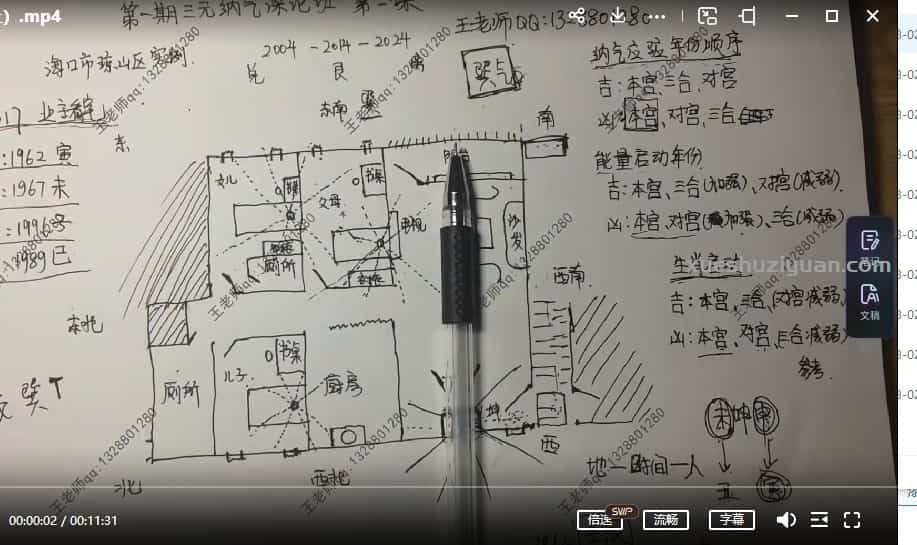 ) .mp4
第一期三元纳气深论班 第一课
王老师QQ:1328801280
海口市琼山区案例
2004 - 2014 - 2024
兑 艮 离
巽气
纳气应验年份顺序
吉:本宫、三合、对宫
凶:本宫、对宫、三合
能量启动年份
吉:本宫、三合(加强)、对宫(减弱)
凶:本宫、对宫(加强)、三合(减弱)
生肖启动
吉:本宫、三合、对宫减弱
凶:本宫、对宫、三合减弱
参考
:1962 寅
:1967 未
:1996
1989 巳
东
东南 巽
南
女儿
书桌
父母
书桌
电视
沙发
厕所
衣柜
西南
东北
厕所
儿子
书桌
厨房
坤
西
北
西北
未坤申
地一时间一人
丑
寅
巽
王老师qq:1328801280
xueshuziyuan.com
笔记
文稿
00:00:02 / 00:11:31
倍速
SWP
流畅
字幕